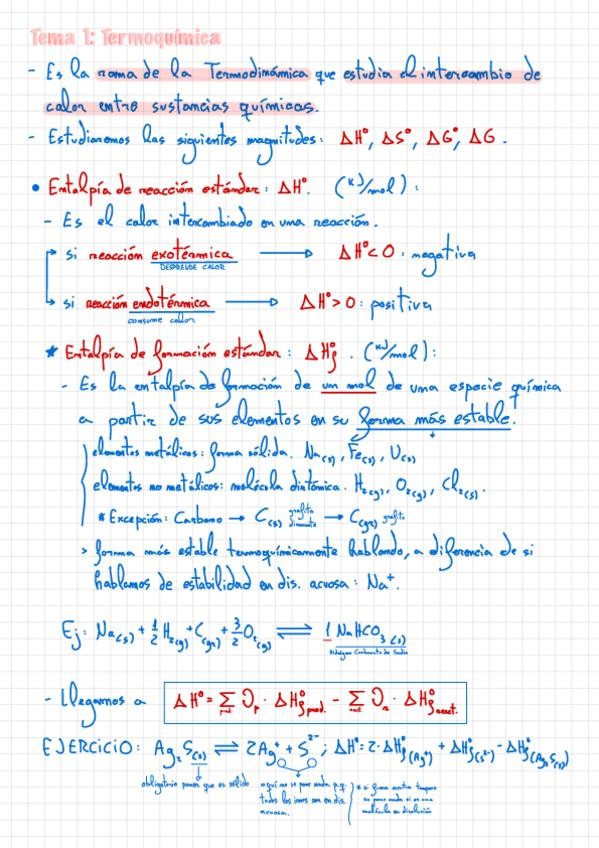 Tema 1: Termoquímica
- Es la rama de la Termodinámica que estudia el intercambio de
calor entre sustancias químicas.
- Estudiaremos las siguientes magnitudes: ΔHº, ΔSº, ΔGº, ΔG.
• Entalpía de reacción estándar: ΔHº. (kJ/mol):
- Es el calor intercambiado en una reacción.
si reacción exotérmica → ΔHº<0: negativa
DESPRENDE CALOR
si reacción endotérmica → ΔHº>0: positiva
consume calor
* Entalpía de formación estándar: ΔHfº. (kJ/mol):
- Es la entalpía de formación de un mol de una especie química
a partir de sus elementos en su forma más estable.
elementos metálicos: forma sólida. Na(s), Fe(s), U(s)
elementos no metálicos: molécula diatómica. H2(g), O2(g), Cl2(g).
* Excepción: Carbono → C(s) grafito diamante → C(gr) grafito
> forma más estable termoquímicamente hablando, a diferencia de si
hablamos de estabilidad en dis. acuosa: Na⁺.
Ej: Na(s) + 1/2 H2(g) + C(gr) + 3/2 O2(g) ⇌ 1 NaHCO3(s)
Hidrógeno Carbonato de Sodio
- Llegamos a ΔHº = Σ νp · ΔHfº prod. - Σ νr · ΔHfº react.
EJERCICIO: Ag2S(s) ⇌ 2Ag⁺ + S²⁻; ΔHº = 2·ΔHfº(Ag⁺) + ΔHfº(s²⁻) - ΔHfº(Ag2S(s))
obligatorio poner que es sólido
aquí no se pone nada p.q.
todos los iones son en dis.
acuosa.
* si fuera neutra tampoco
se pone nada si es una
molécula en disolución